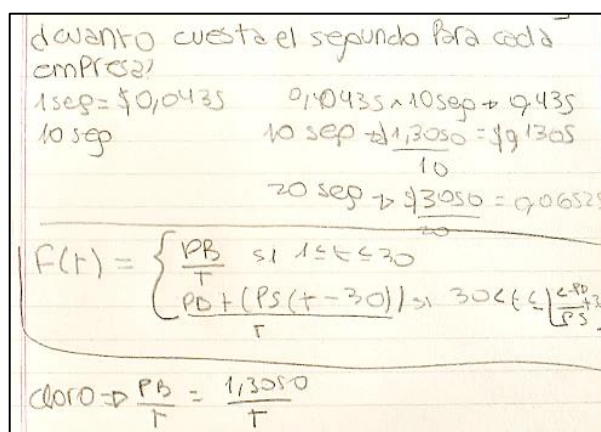 dcuanto cuesta el segundo Para cada
empresa?
1seg = $0,0435 0,0435 x 10seg → 0,435
10 seg 10 seg → $1,3050 = $0,1305
10
20 seg → $1,3050 = 0,06525
20
F(t) = { PB si 1≤t≤30
T
PB + (PS(t-30)) si 30<t≤ [C-PB + 3
T PS
claro ⇒ PB = 1,3050
T T